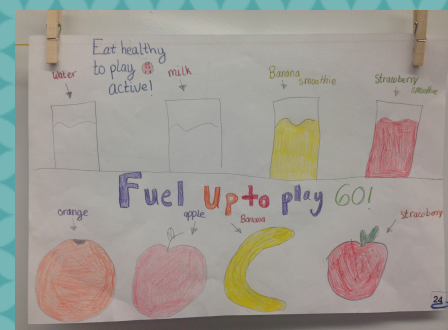 Eat healthy
to play
active!
water
milk
Banana
smoothie
Strawberry
smoothie
Fuel Up to play 60!
orange
apple
Banana
strawberry
24